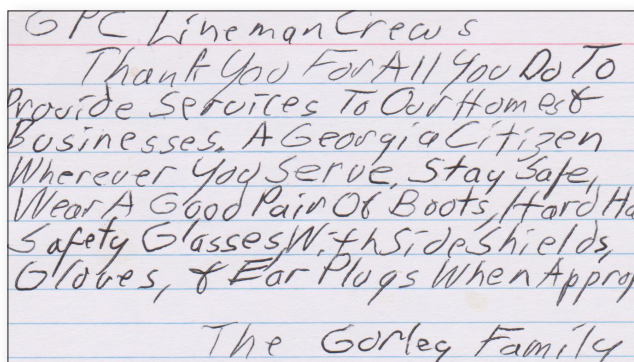 GPC Lineman Crews
Thank You For All You Do To
Provide Services To Our Homes &
Businesses. A Georgia Citizen
Wherever You Serve, Stay Safe,
Wear A Good Pair Of Boots, Hard Ha
Safety Glasses With Side Shields,
Gloves, & Ear Plugs When Approp
The Gorley Family